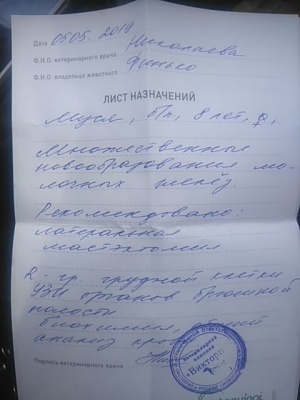 Дата 05.05.2019
Ф.И.О. ветеринарного врача Николаева
Ф.И.О. владельца животного Финько
ЛИСТ НАЗНАЧЕНИЙ
Муся, б/п, 8 лет, ♀,
Множественные
новообразования мо-
лочных желёз.
Рекомендовано:
латеральная
мастэктомия
R-гр. грудной клетки
УЗИ органов брюшной
полости
биохимия,
анализ
Подпись ветеринарного врача
Ветеринарная
клиника
"Виктори